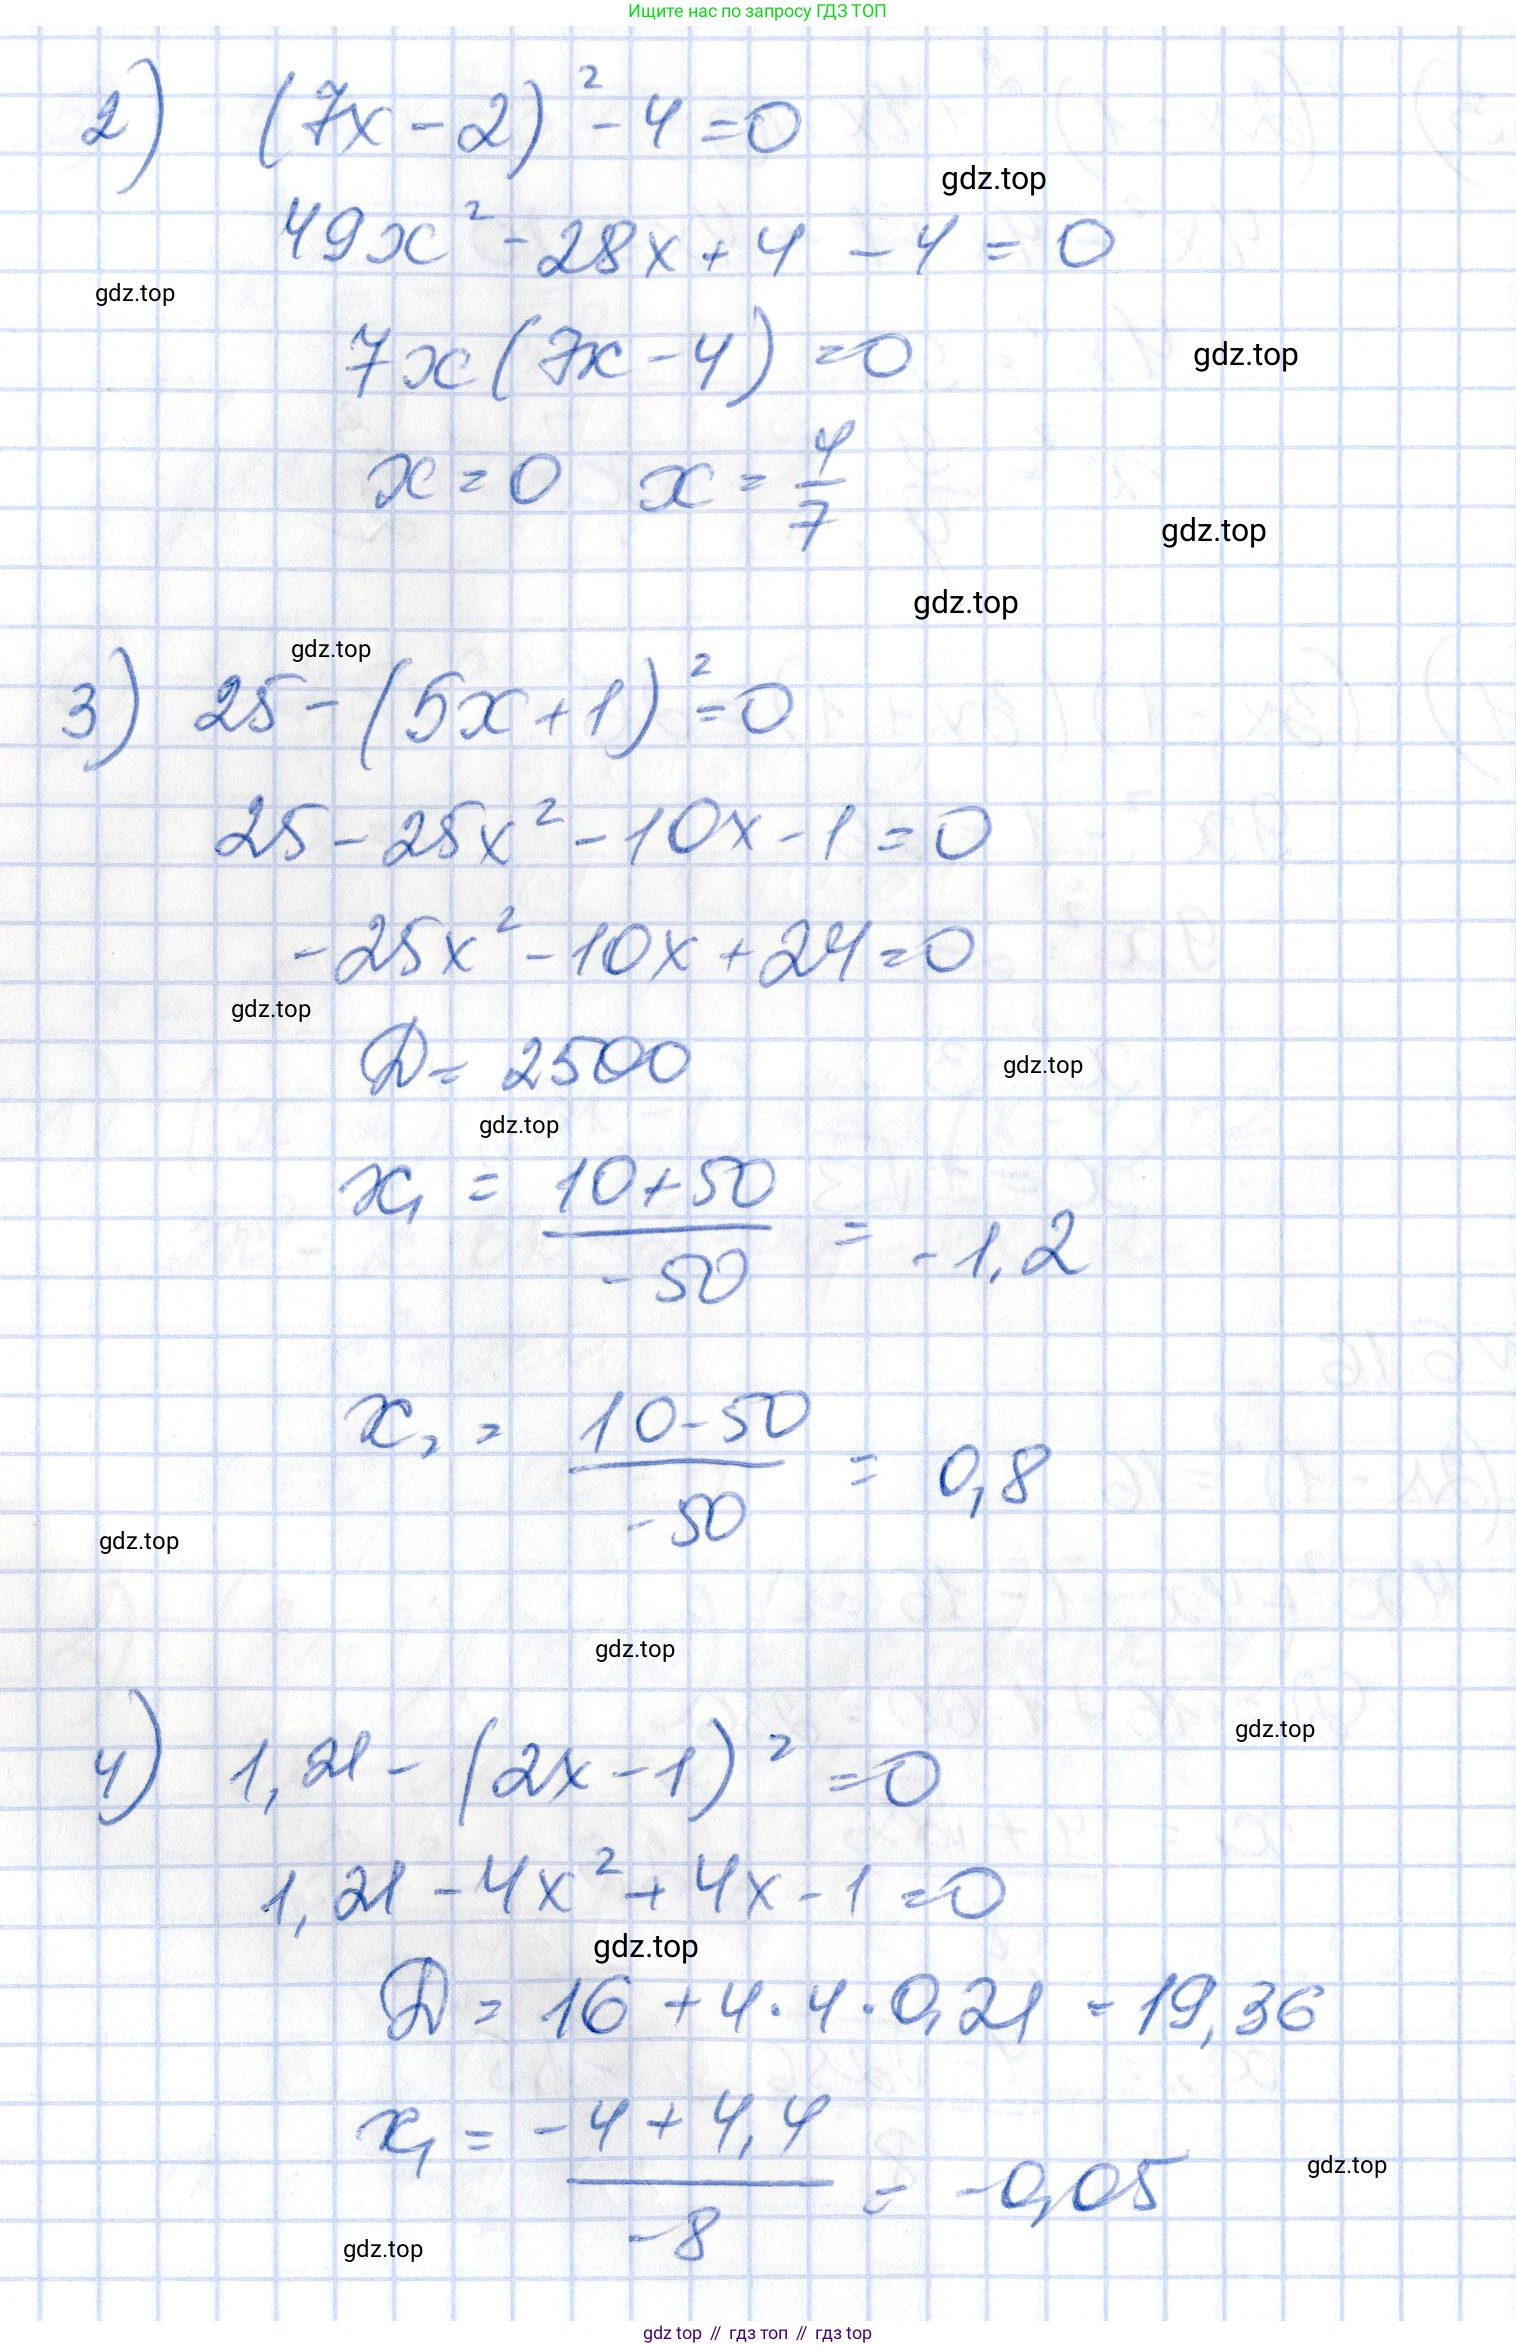 Ищите нас по запросу ГДЗ ТОП
2) (7x - 2)² - 4 = 0
gdz.top
49x² - 28x + 4 - 4 = 0
gdz.top
7x(7x - 4) = 0
gdz.top
x = 0 x = 4/7
gdz.top
gdz.top
gdz.top
3) 25 - (5x + 1)² = 0
25 - 25x² - 10x - 1 = 0
-25x² - 10x + 24 = 0
gdz.top
D = 2500
gdz.top
gdz.top
x₁ = (10 + 50)/(-50) = -1,2
x₂ = (10 - 50)/(-50) = 0,8
gdz.top
gdz.top
gdz.top
4) 1,21 - (2x - 1)² = 0
1,21 - 4x² + 4x - 1 = 0
gdz.top
D = 16 + 4 · 4 · 0,21 = 19,36
x₁ = (-4 + 4,4)/(-8) = -0,05
gdz.top
gdz.top
gdz top // гдз топ // гдз top